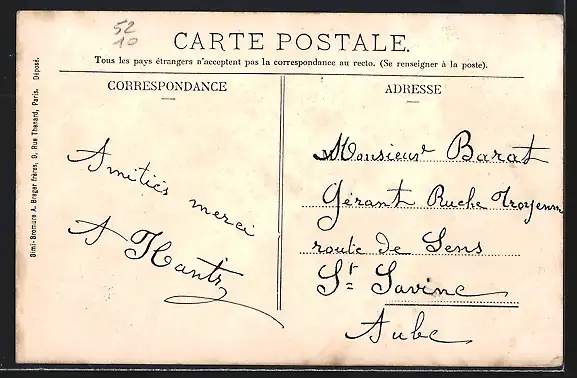 52
10
CARTE POSTALE.
Tous les pays étrangers n'acceptent pas la correspondance au recto. (Se renseigner à la poste).
CORRESPONDANCE
Amitiés merci
A
ADRESSE
Monsieur Barat
Gérant Ruche Troyenne
route de Sens
St Savine
Aube
Simi-Bromure A. Breger frères, 9, Rue Thénard, Paris. Déposé.